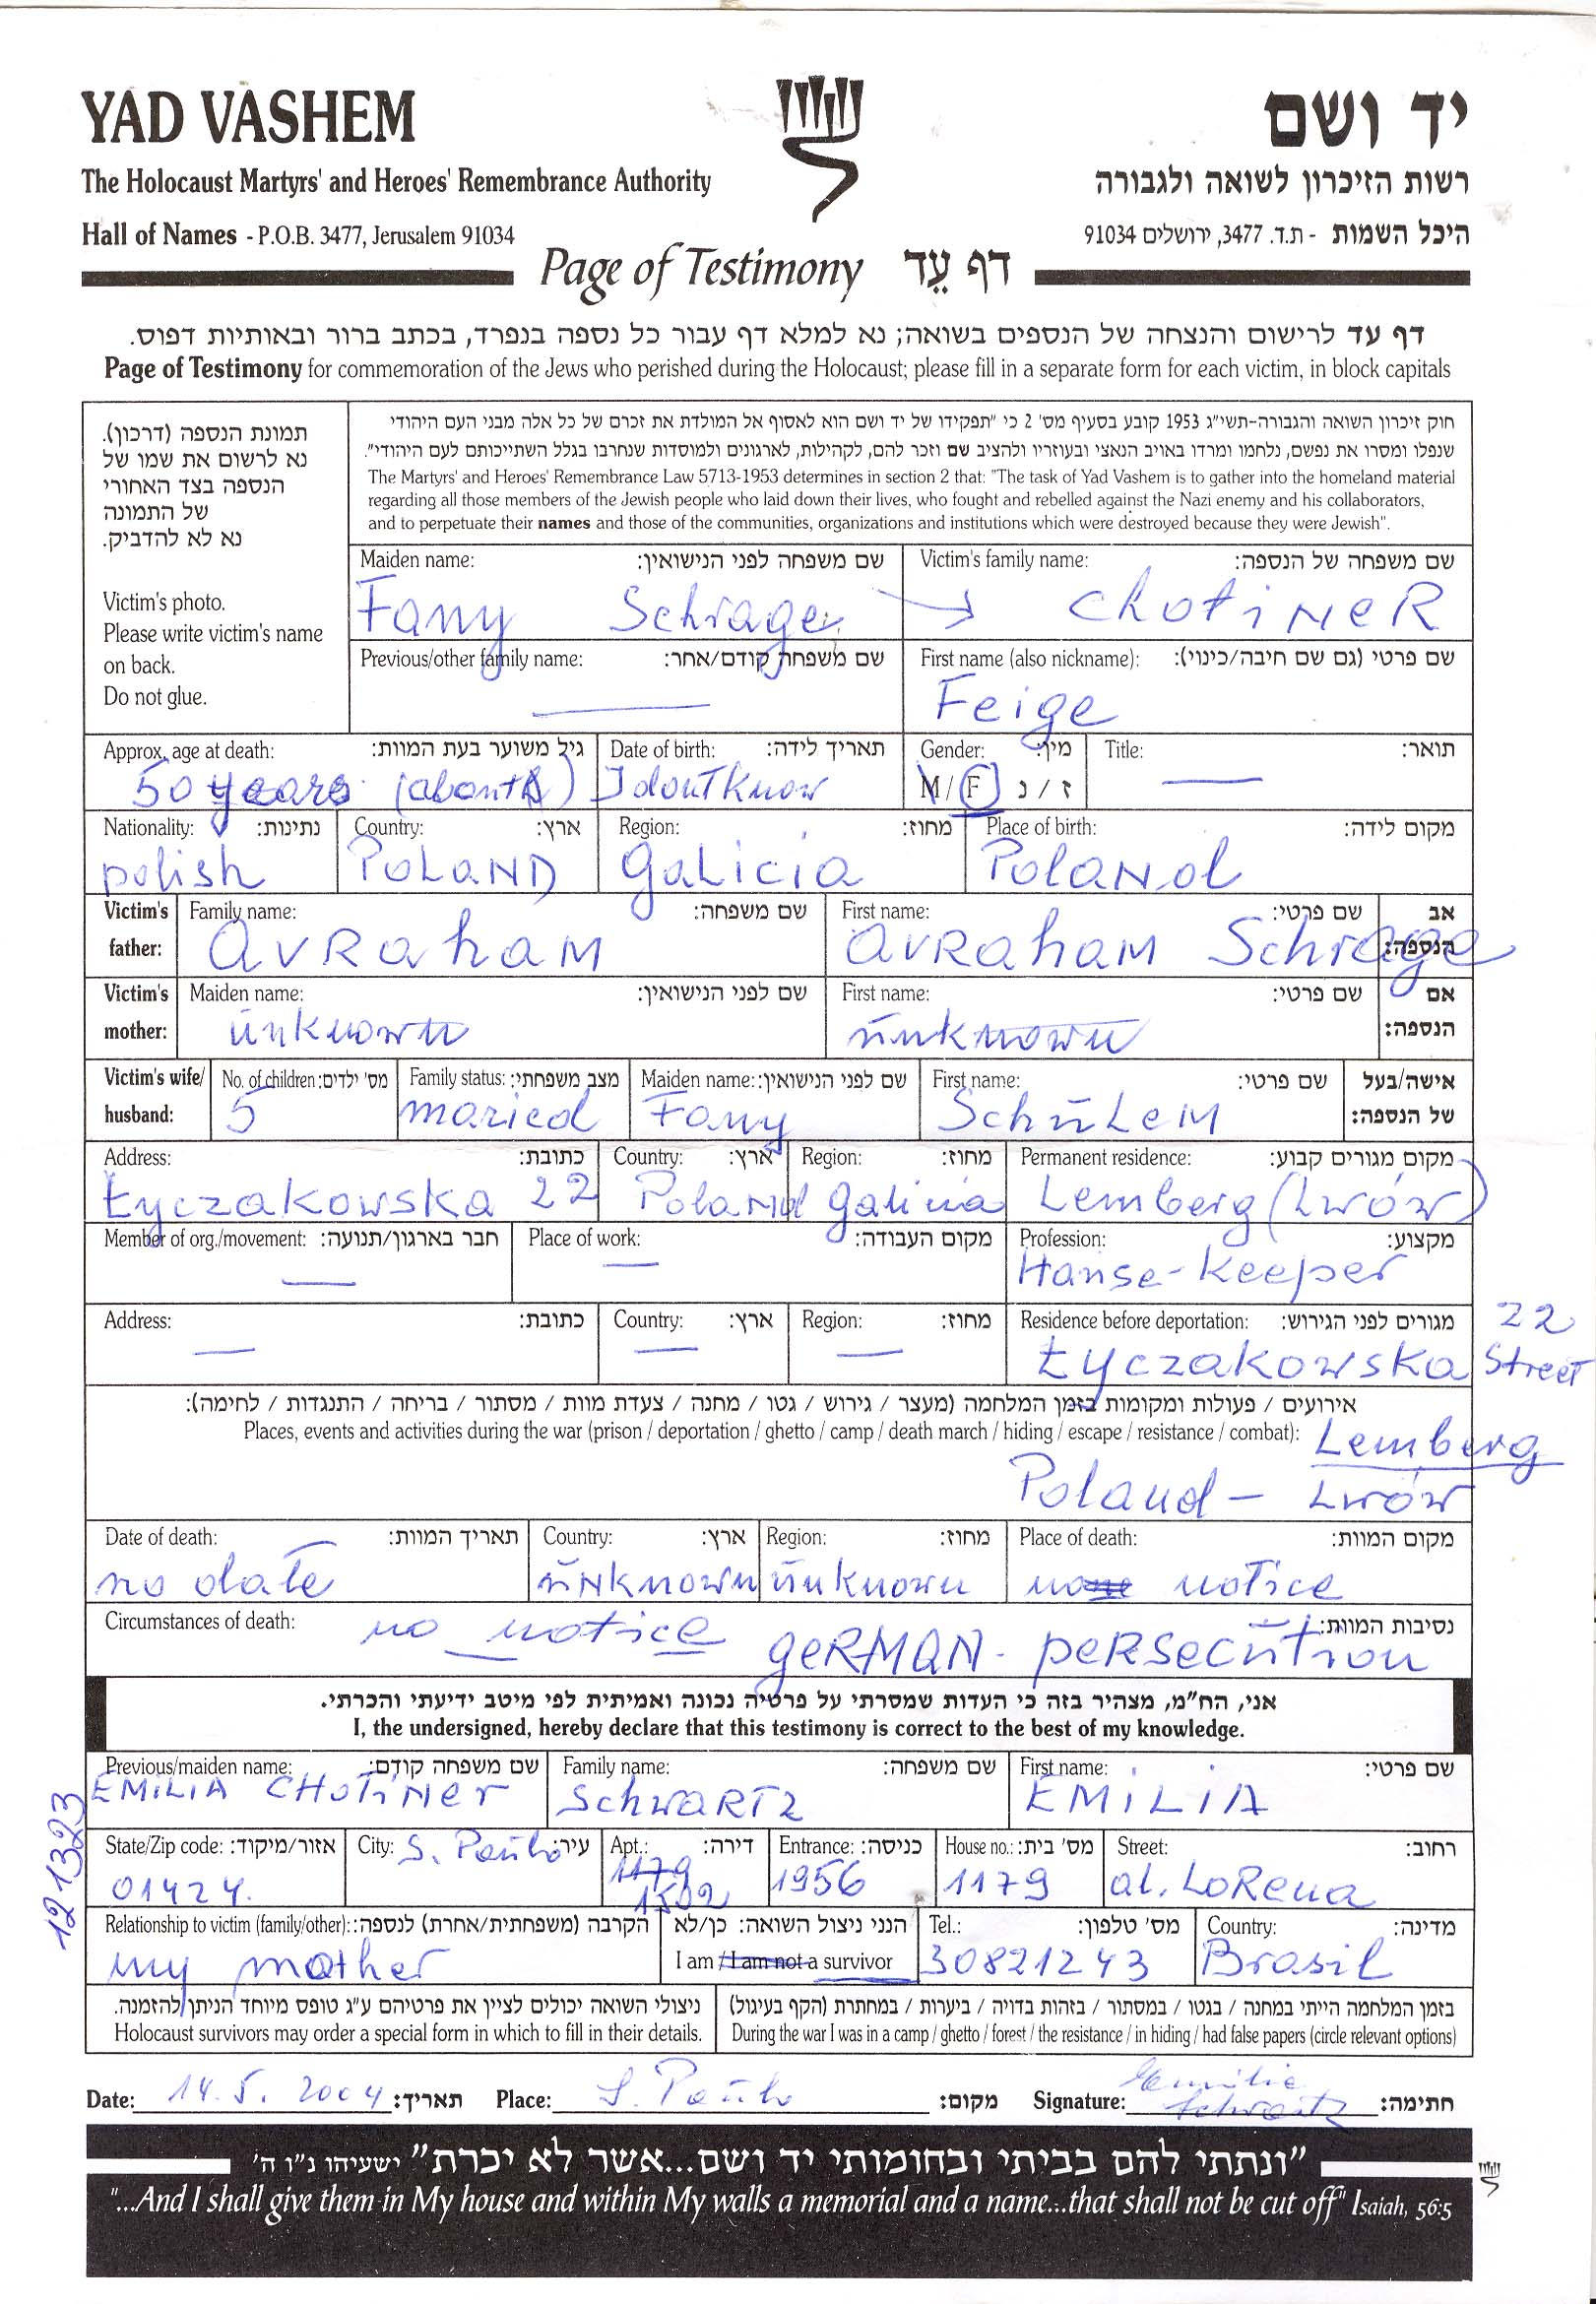 YAD VASHEM
יד ושם
The Holocaust Martyrs' and Heroes' Remembrance Authority
רשות הזיכרון לשואה ולגבורה
Hall of Names - P.O.B. 3477, Jerusalem 91034
היכל השמות - ת.ד. 3477, ירושלים 91034
Page of Testimony דף עֵד
דף עד לרישום והנצחה של הנספים בשואה; נא למלא דף עבור כל נספה בנפרד, בכתב ברור ובאותיות דפוס.
Page of Testimony for commemoration of the Jews who perished during the Holocaust; please fill in a separate form for each victim, in block capitals
תמונת הנספה (דרכון).
נא לרשום את שמו של
הנספה בצד האחורי
של התמונה
נא לא להדביק.
Victim's photo.
Please write victim's name
on back.
Do not glue.
חוק זיכרון השואה והגבורה-תשי"ג 1953 קובע בסעיף מס' 2 כי "תפקידו של יד ושם הוא לאסוף אל המולדת את זכרם של כל אלה מבני העם היהודי
שנפלו ומסרו את נפשם, נלחמו ומרדו באויב הנאצי ובעוזריו ולהציב שם וזכר להם, לקהילות, לארגונים ולמוסדות שנחרבו בגלל השתייכותם לעם היהודי".
The Martyrs' and Heroes' Remembrance Law 5713-1953 determines in section 2 that: "The task of Yad Vashem is to gather into the homeland material
regarding all those members of the Jewish people who laid down their lives, who fought and rebelled against the Nazi enemy and his collaborators,
and to perpetuate their names and those of the communities, organizations and institutions which were destroyed because they were Jewish".
Maiden name: שם משפחה לפני הנישואין: Victim's family name: שם משפחה של הנספה:
Fany Schrage → CHOTiNeR
Previous/other family name: שם משפחה קודם/אחר: First name (also nickname): שם פרטי (גם שם חיבה/כינוי):
— Feige
Approx. age at death: גיל משוער בעת המוות: Date of birth: תאריך לידה: Gender: מין: Title: תואר:
50 years (about) I dont Know M / F ז / נ —
Nationality: נתינות: Country: ארץ: Region: מחוז: Place of birth: מקום לידה:
polish POLAND GaLicia PoLaNd
Victim's father: Family name: שם משפחה: First name: שם פרטי: אב הנספה:
AVRahaM AVRahaM Schrage
Victim's mother: Maiden name: שם לפני הנישואין: First name: שם פרטי: אם הנספה:
unknown unknown
Victim's wife/ husband: No. of children: מס' ילדים: Family status: מצב משפחתי: Maiden name: שם לפני הנישואין: First name: שם פרטי: אישה/בעל של הנספה:
5 maried Fany SchuLeM
Address: כתובת: Country: ארץ: Region: מחוז: Permanent residence: מקום מגורים קבוע:
Łyczakowska 22 Poland Galicia Lemberg (Lwów)
Member of org./movement: חבר בארגון/תנועה: Place of work: מקום העבודה: Profession: מקצוע:
— — Hause-Keeper
Address: כתובת: Country: ארץ: Region: מחוז: Residence before deportation: מגורים לפני הגירוש:
— — — Łyczakowska 22 Street
אירועים / פעולות ומקומות בזמן המלחמה (מעצר / גירוש / גטו / מחנה / צעדת מוות / מסתור / בריחה / התנגדות / לחימה):
Places, events and activities during the war (prison / deportation / ghetto / camp / death march / hiding / escape / resistance / combat): Lemberg
Poland - Lwów
Date of death: תאריך המוות: Country: ארץ: Region: מחוז: Place of death: מקום המוות:
no date unknown unknown no notice
Circumstances of death: נסיבות המוות:
no notice geRMAN - peRsecution
אני, הח"מ, מצהיר בזה כי העדות שמסרתי על פרטיה נכונה ואמיתית לפי מיטב ידיעתי והכרתי.
I, the undersigned, hereby declare that this testimony is correct to the best of my knowledge.
Previous/maiden name: שם משפחה קודם: Family name: שם משפחה: First name: שם פרטי:
EMiLiA CHOTiNer SchwARTz EMiLiA
State/Zip code: אזור/מיקוד: City: עיר: Apt.: דירה: Entrance: כניסה: House no.: מס' בית: Street: רחוב:
01424. S. Paulo 1179 1502 1956 1179 al. LoRena
121323
Relationship to victim (family/other): הקרבה (משפחתית/אחרת) לנספה: הנני ניצול השואה: כן/לא Tel.: מס' טלפון: Country: מדינה:
my mother I am / I am not a survivor 30821243 Brasil
ניצולי השואה יכולים לציין את פרטיהם ע"ג טופס מיוחד הניתן להזמנה.
Holocaust survivors may order a special form in which to fill in their details.
בזמן המלחמה הייתי במחנה / בגטו / במסתור / בזהות בדויה / ביערות / במחתרת (הקף בעיגול)
During the war I was in a camp / ghetto / forest / the resistance / in hiding / had false papers (circle relevant options)
Date: 14.5.2004 תאריך: Place: S. Paulo מקום: Signature: Emilia Schwartz חתימה:
"ונתתי להם בביתי ובחומותי יד ושם...אשר לא יכרת" ישעיהו נ"ו ה'
"...And I shall give them in My house and within My walls a memorial and a name...that shall not be cut off" Isaiah, 56:5